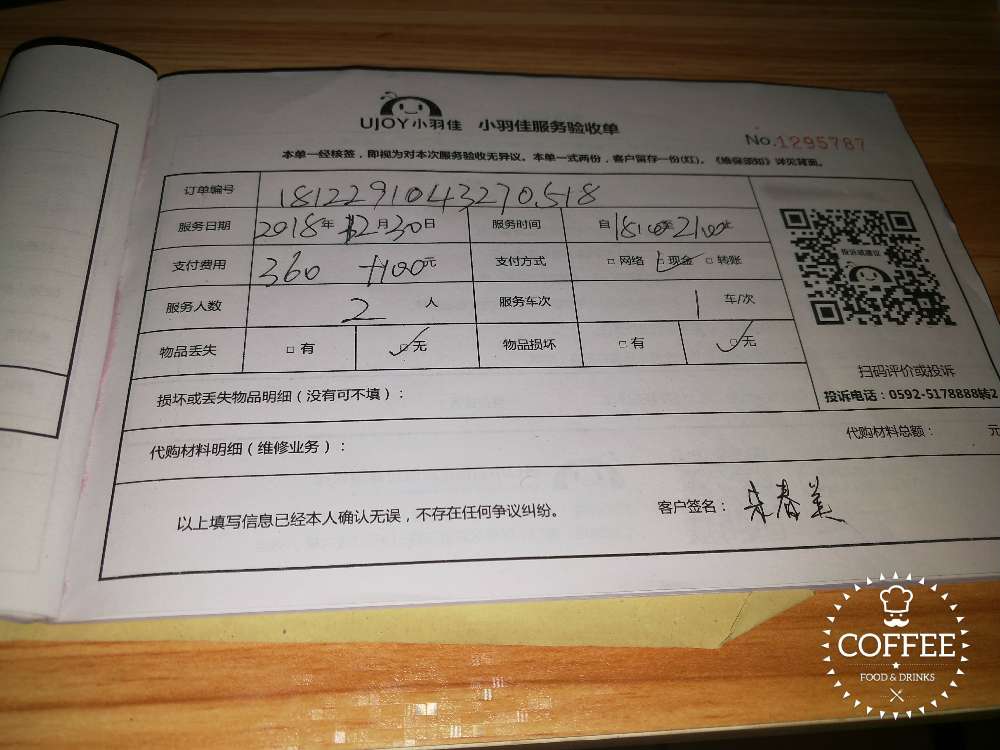 UJOY小羽佳 小羽佳服务验收单
No.1295787
本单一经核签，即视为对本次服务验收无异议。本单一式两份，客户留存一份(红)。《维保须知》详见背面。
订单编号 1812291043270518
服务日期 2018年12月30日 服务时间 自18:00至21:00止
支付费用 360 +100元 支付方式 □网络 ☑现金 □转账
服务人数 2 人 服务车次 1 车/次
物品丢失 □有 ☑无 物品损坏 □有 ☑无
投诉或建议
扫码评价或投诉
投诉电话：0592-5178888转2
损坏或丢失物品明细（没有可不填）：
代购材料明细（维修业务）： 代购材料总额： 元
以上填写信息已经本人确认无误，不存在任何争议纠纷。 客户签名：朱春美
COFFEE
FOOD & DRINKS